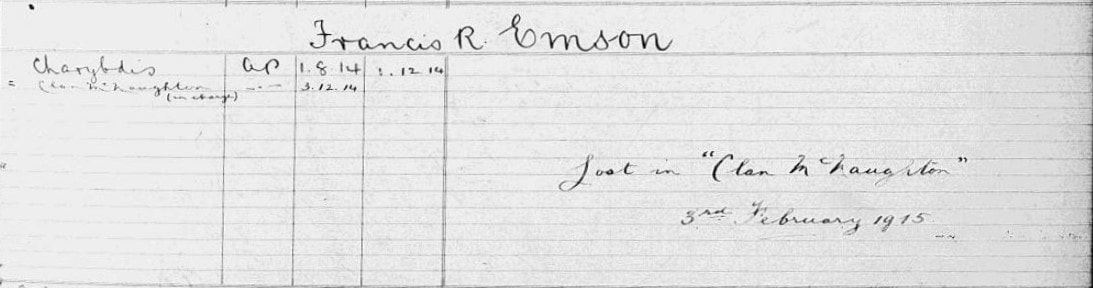 Francis R. Emson
Charybdis AP 1.8.14 1.12.14
" Clan McNaughton —"— 3.12.14
(in charge)
Lost in "Clan McNaughton"
3rd February 1915